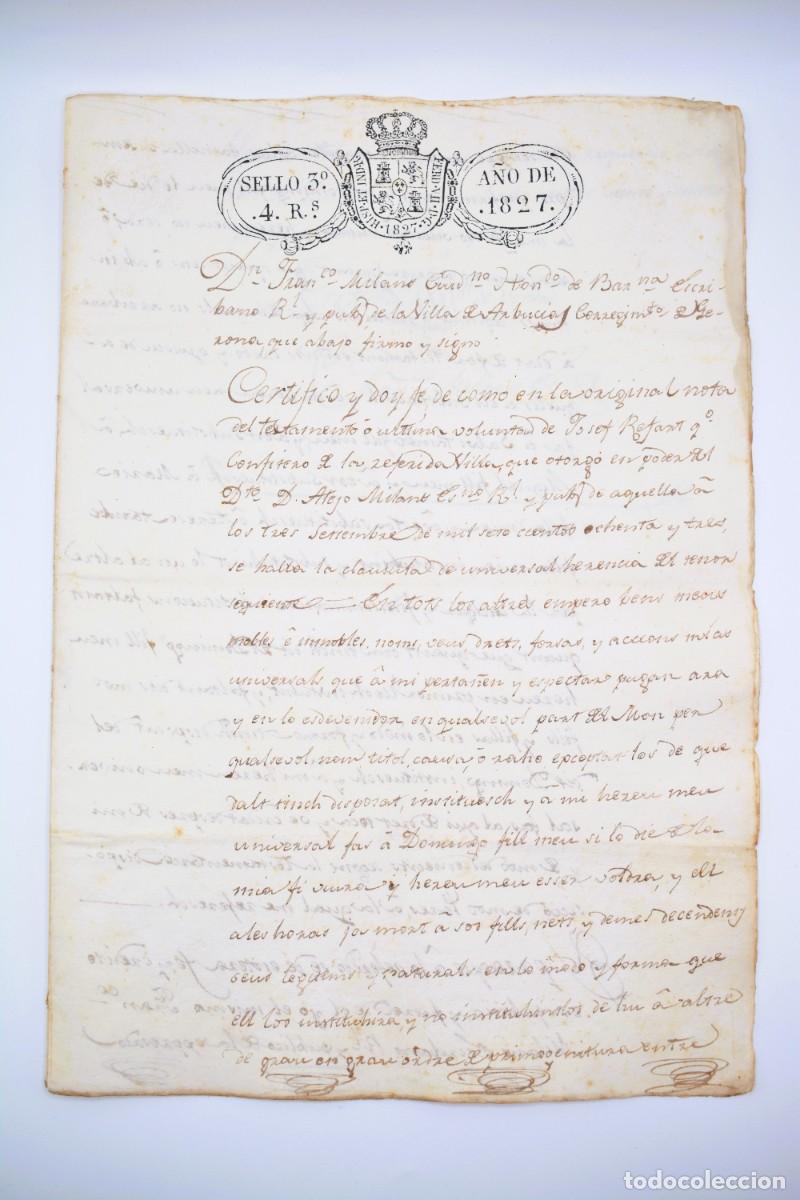 SELLO 3º
.4. R.s
HISP. ET IND. R.
FERD. VII. D.G.
.1827.
AÑO DE
.1827.
Dn. Franco Milans Ciud.no Hon.do de Bar.na Escri-
bano Rl. y pubo de la Villa de Arbucias Corregimto de Ge-
rona, que abajo firmo y signo
Certifico y doy fe de como en la original nota
del testamento ô ultima voluntad de Josef Refart qo.
Confitero de la referida Villa, que otorgó en poder del
Dto. D. Alejo Milans Esno Rl. y pubo de aquella â
los tres Setiembre de mil sete cientos ochenta y tres,
se halla la clausula de universal herencia del tenor
siguiente = En tots los altres empero bens meus
mobles ê inmobles, noms, veus, drets, forsas, y accions mias
universals que â mi pertañen y espectar pugan ara
y en lo esdevenidor en qualsevol part del Mon per
qualsevol nom titol, causa, ô raho exceptat los de que
dalt tinch disposat, instituesch y â mi hereu meu
universal fas â Domingo fill meu si lo die de la
mia fi viura y hereu meu esser voldra, y ell
aleshoras ja mort â sos fills, nets, y demes decendens
seus llegitims y naturals en lo modo y forma que
ell los instituhira, y no instituhintlos de hu â altre
de grau en grau ordre de primogenitura entre
todocoleccion
todocoleccion.net